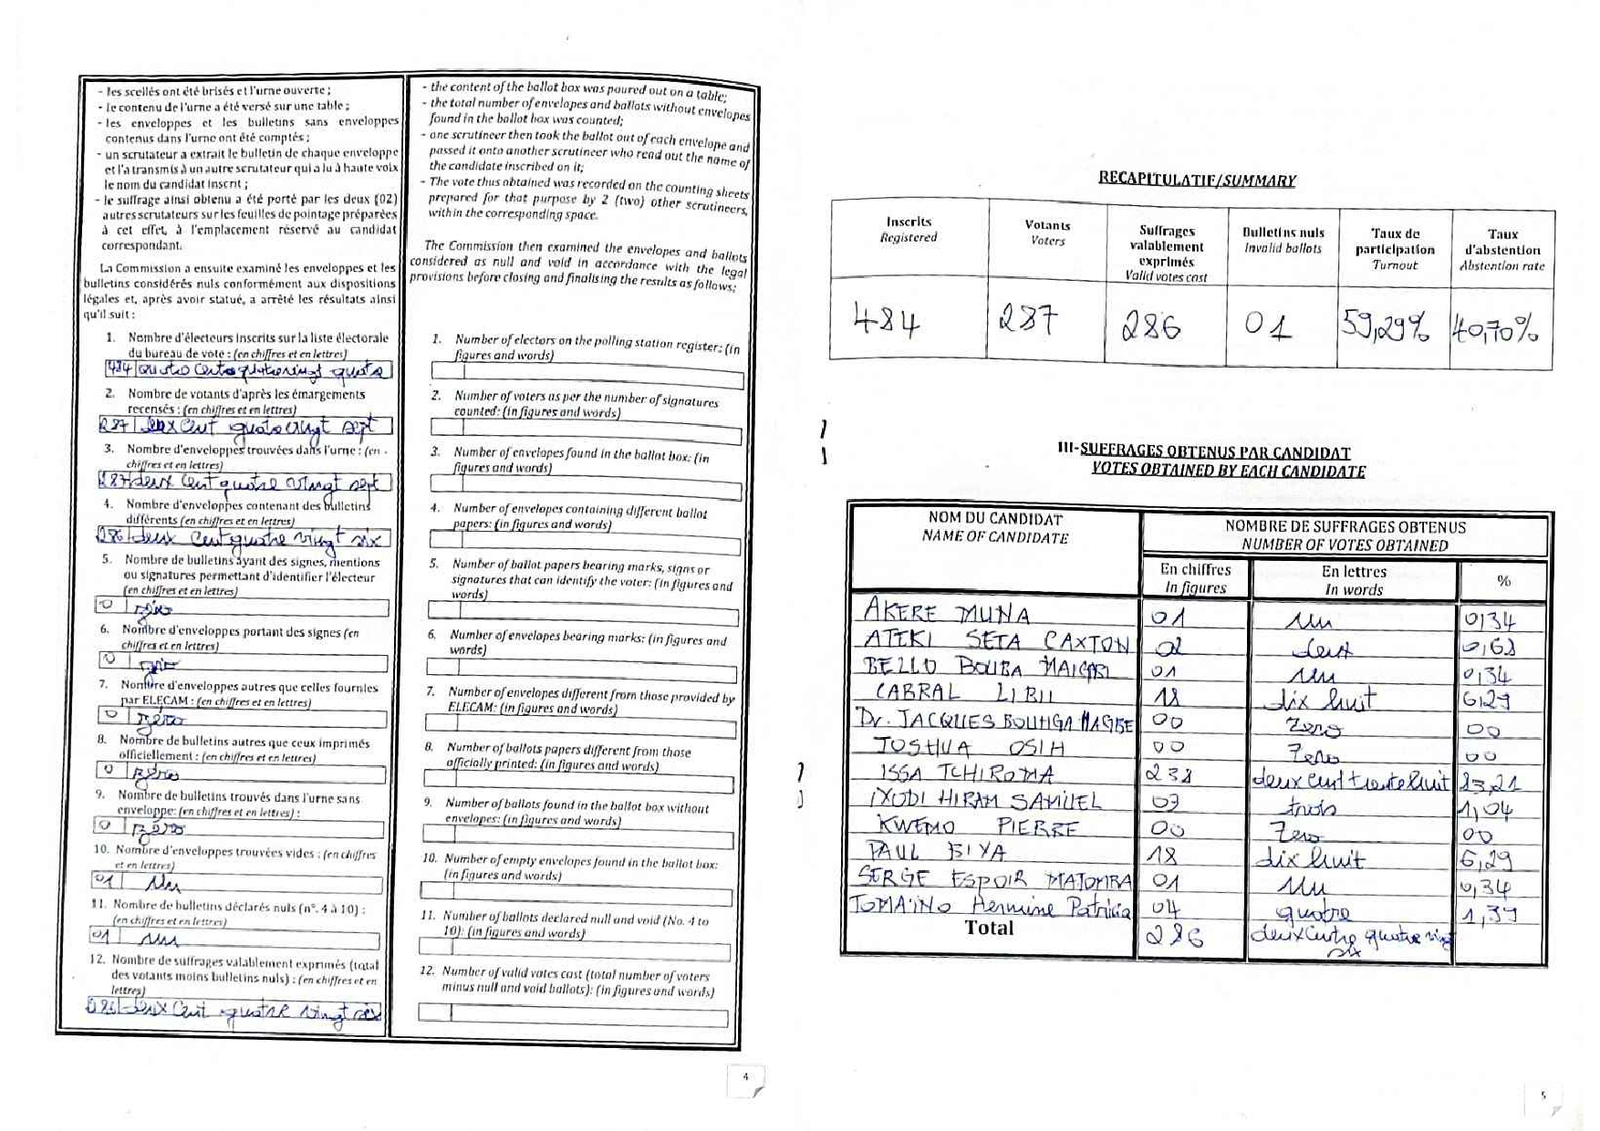 - les scellés ont été brisés et l'urne ouverte ;
- le contenu de l'urne a été versé sur une table ;
- les enveloppes et les bulletins sans enveloppes
contenus dans l'urne ont été comptés ;
- un scrutateur a extrait le bulletin de chaque enveloppe
et l'a transmis à un autre scrutateur qui a lu à haute voix
le nom du candidat inscrit ;
- le suffrage ainsi obtenu a été porté par les deux (02)
autres scrutateurs sur les feuilles de pointage préparées
à cet effet, à l'emplacement réservé au candidat
correspondant.
La Commission a ensuite examiné les enveloppes et les
bulletins considérés nuls conformément aux dispositions
légales et, après avoir statué, a arrêté les résultats ainsi
qu'il suit :
1. Nombre d'électeurs inscrits sur la liste électorale
du bureau de vote : (en chiffres et en lettres)
484
2. Nombre de votants d'après les émargements
recensés : (en chiffres et en lettres)
287 deux cent quatre vingt sept
3. Nombre d'enveloppes trouvées dans l'urne : (en
chiffres et en lettres)
287 deux cent quatre vingt sept
4. Nombre d'enveloppes contenant des bulletins
différents (en chiffres et en lettres)
286 deux cent quatre vingt six
5. Nombre de bulletins ayant des signes, mentions
ou signatures permettant d'identifier l'électeur
(en chiffres et en lettres)
0 zéro
6. Nombre d'enveloppes portant des signes (en
chiffres et en lettres)
0 zéro
7. Nombre d'enveloppes autres que celles fournies
par ELECAM : (en chiffres et en lettres)
0 zéro
8. Nombre de bulletins autres que ceux imprimés
officiellement : (en chiffres et en lettres)
0 zéro
9. Nombre de bulletins trouvés dans l'urne sans
enveloppe: (en chiffres et en lettres) :
0 zéro
10. Nombre d'enveloppes trouvées vides : (en chiffres
et en lettres)
01 un
11. Nombre de bulletins déclarés nuls (n°. 4 à 10) :
(en chiffres et en lettres)
01 un
12. Nombre de suffrages valablement exprimés (total
des votants moins bulletins nuls) : (en chiffres et en
lettres)
286 deux cent quatre vingt six
- the content of the ballot box was poured out on a table;
- the total number of envelopes and ballots without envelopes
found in the ballot box was counted;
- one scrutineer then took the ballot out of each envelope and
passed it onto another scrutineer who read out the name of
the candidate inscribed on it;
- The vote thus obtained was recorded on the counting sheets
prepared for that purpose by 2 (two) other scrutineers,
within the corresponding space.
The Commission then examined the envelopes and ballots
considered as null and void in accordance with the legal
provisions before closing and finalising the results as follows:
1. Number of electors on the polling station register: (in
figures and words)
2. Number of voters as per the number of signatures
counted: (in figures and words)
3. Number of envelopes found in the ballot box: (in
figures and words)
4. Number of envelopes containing different ballot
papers: (in figures and words)
5. Number of ballot papers bearing marks, signs or
signatures that can identify the voter: (in figures and
words)
6. Number of envelopes bearing marks: (in figures and
words)
7. Number of envelopes different from those provided by
ELECAM: (in figures and words)
8. Number of ballots papers different from those
officially printed: (in figures and words)
9. Number of ballots found in the ballot box without
envelopes: (in figures and words)
10. Number of empty envelopes found in the ballot box:
(in figures and words)
11. Number of ballots declared null and void (No. 4 to
10): (in figures and words)
12. Number of valid votes cast (total number of voters
minus null and void ballots): (in figures and words)
4
RECAPITULATIF/SUMMARY
Inscrits Registered
Votants Voters
Suffrages valablement exprimés Valid votes cast
Bulletins nuls Invalid ballots
Taux de participation Turnout
Taux d'abstention Abstention rate
484 287 286 01 59,29% 40,70%
III-SUFFRAGES OBTENUS PAR CANDIDAT
VOTES OBTAINED BY EACH CANDIDATE
NOM DU CANDIDAT
NAME OF CANDIDATE
NOMBRE DE SUFFRAGES OBTENUS
NUMBER OF VOTES OBTAINED
En chiffres En lettres %
In figures In words
AKERE MUNA 01 un 0,34
ATEKI SETA CAXTON 02 deux 0,68
BELLO BOUBA MAIGARI 01 un 0,34
CABRAL LIBII 18 dix huit 6,29
Dr. JACQUES BOUNGA HAGBE 00 Zero 00
JOSHUA OSIH 00 Zero 00
ISSA TCHIROMA 238 deux cent trente huit 83,21
IYODI HIRAM SAMUEL 03 trois 1,04
KWEMO PIERRE 00 Zero 00
PAUL BIYA 18 dix huit 6,29
SERGE ESPOIR MATOMBA 01 un 0,34
TOMAÏNO Hermine Patricia 04 quatre 1,39
Total 286
5